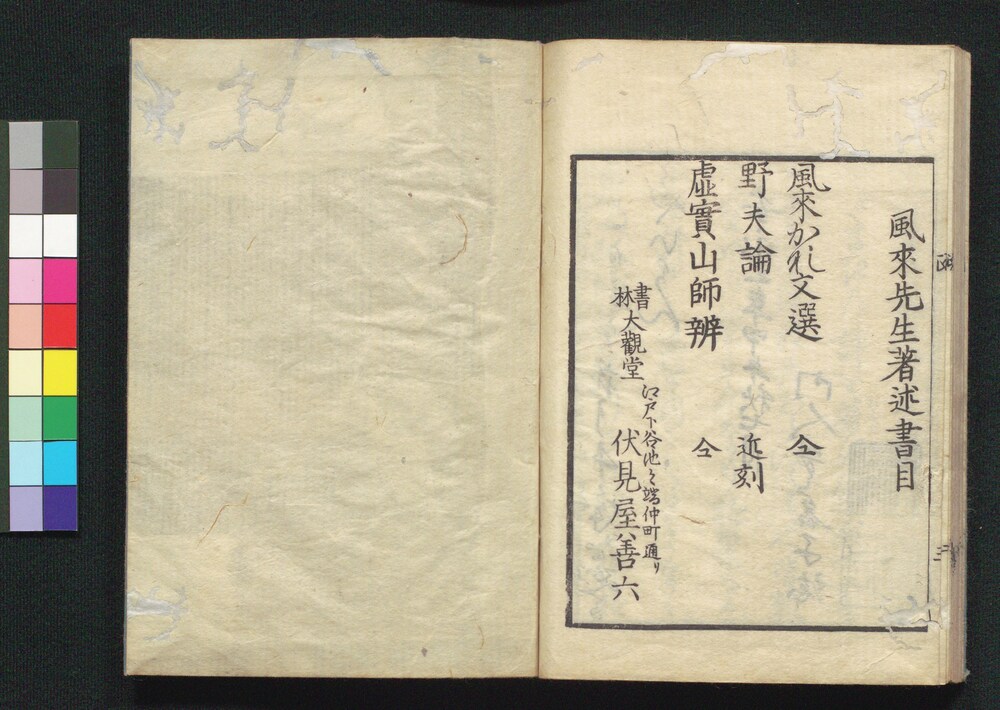 風來先生著述書目
風來かれ文選 仝
野夫論 近刻
虛實山師辨 仝
江戸下谷池之端仲町通り
書林 大觀堂 伏見屋善六